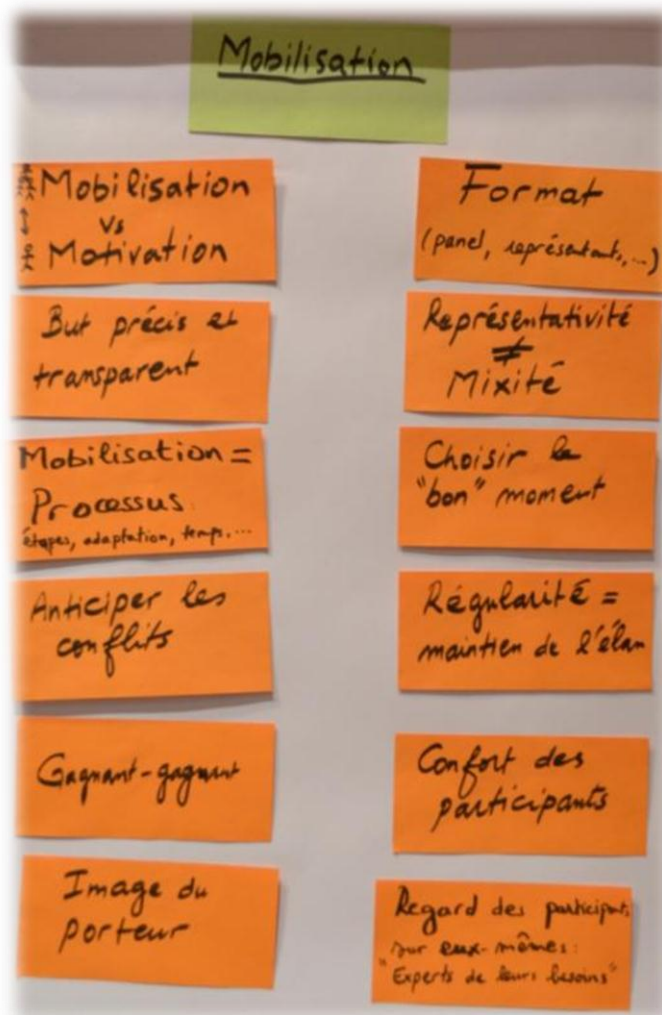 Mobilisation
Mobilisation
vs
Motivation
But précis et
transparent
Mobilisation =
Processus
étapes, adaptation, temps....
Anticiper les
conflits
Gagnant-gagnant
Image du
porteur
Format
(panel, représentants,...)
Représentativité
≠
Mixité
Choisir le
"bon" moment
Régularité =
maintien de l'élan
Confort des
participants
Regard des participants
sur eux-mêmes:
"Experts de leurs besoins"